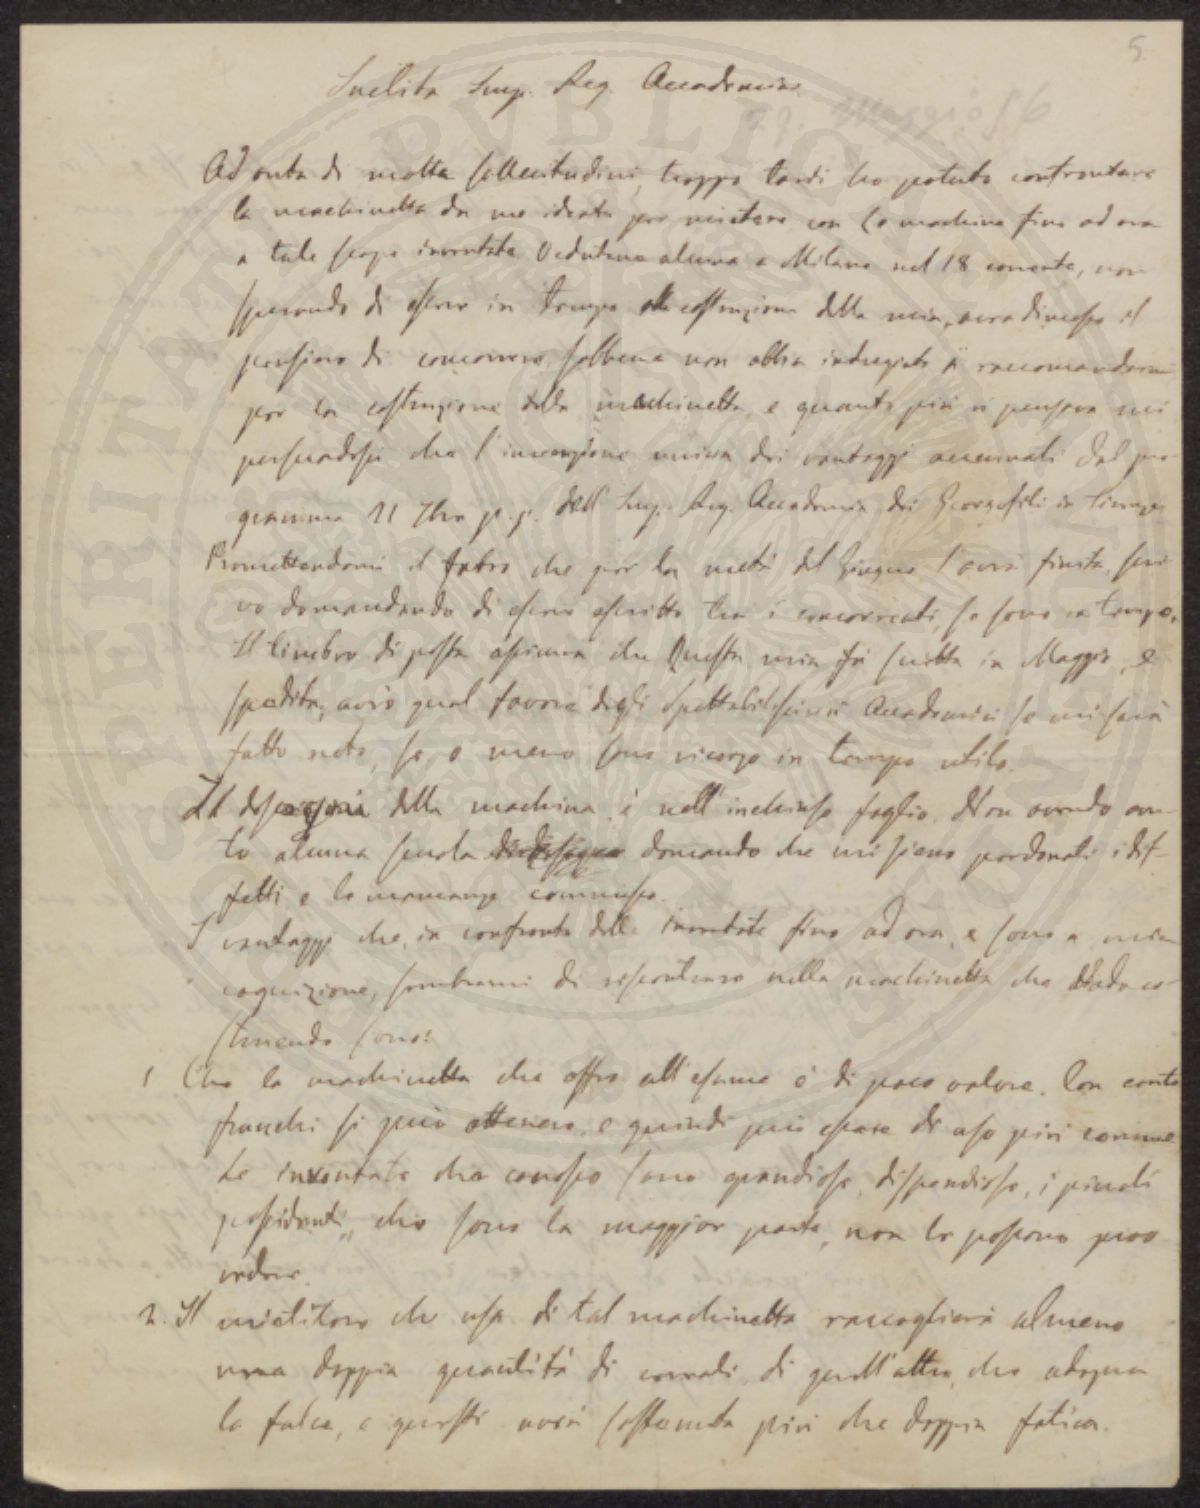 5
Inclita Imp. Reg. Accademia
29. Maggio 56
Ad onta di molta sollecitudine, troppo tardi ho potuto confrontare
la machinetta da me ideata per mietere con le machine fino ad ora
a tale scopo inventate. Vedutane alcuna a Milano nel 18 corrente, non
sperando di essere in tempo alla costruzione della mia, avea dimesso il
pensiero di concorrere, sebbene non abbia indugiato a raccomandarmi
per la costruzione della machinetta, e quanto più vi pensava mi
persuadessi che l'invenzione univa dei vantaggi accennati dal pro-
gramma 11 7bre p. p. dell'Imp. Reg. Accademia dei Georgofili in Firenze
Promettendomi il fabro che per la metà del Giugno l'avrà finita, scri-
vo domandando di essere ascritto tra i concorrenti, se sono in tempo.
Il timbro di posta assicura che Questa mia fù scritta in Maggio, e
spedita; avrò qual favore degli Spettabilissimi Accademici se mi sarà
fatto noto, se, o meno sono ricorso in tempo utile.
La descrizione della machina è nell'inchiuso foglio. Non avendo avu-
to alcuna scuola di disegno domando che mi sieno perdonati i dif-
fetti e le mancanze commesse.
I vantaggi che, in confronto delle inventate fino ad ora, e sono a mia
cognizione, sembrami di riscontrare nella machinetta che stado co-
struendo sono:
1 Che la machinetta che offro all'esame è di poco valore. Con cento
franchi si può ottenere, e quindi può essere di uso più comune
Le inventate che conosco sono grandiose, dispendiose, i piccoli
possidenti, che sono la maggior parte, non le possono prov
vedere.
2. Il mietitore che usa di tal machinetta raccoglierà almeno
una doppia quantità di cereali, di quell'altro, che adopra
la falce, e questi avrà sostenuta più che doppia fatica.